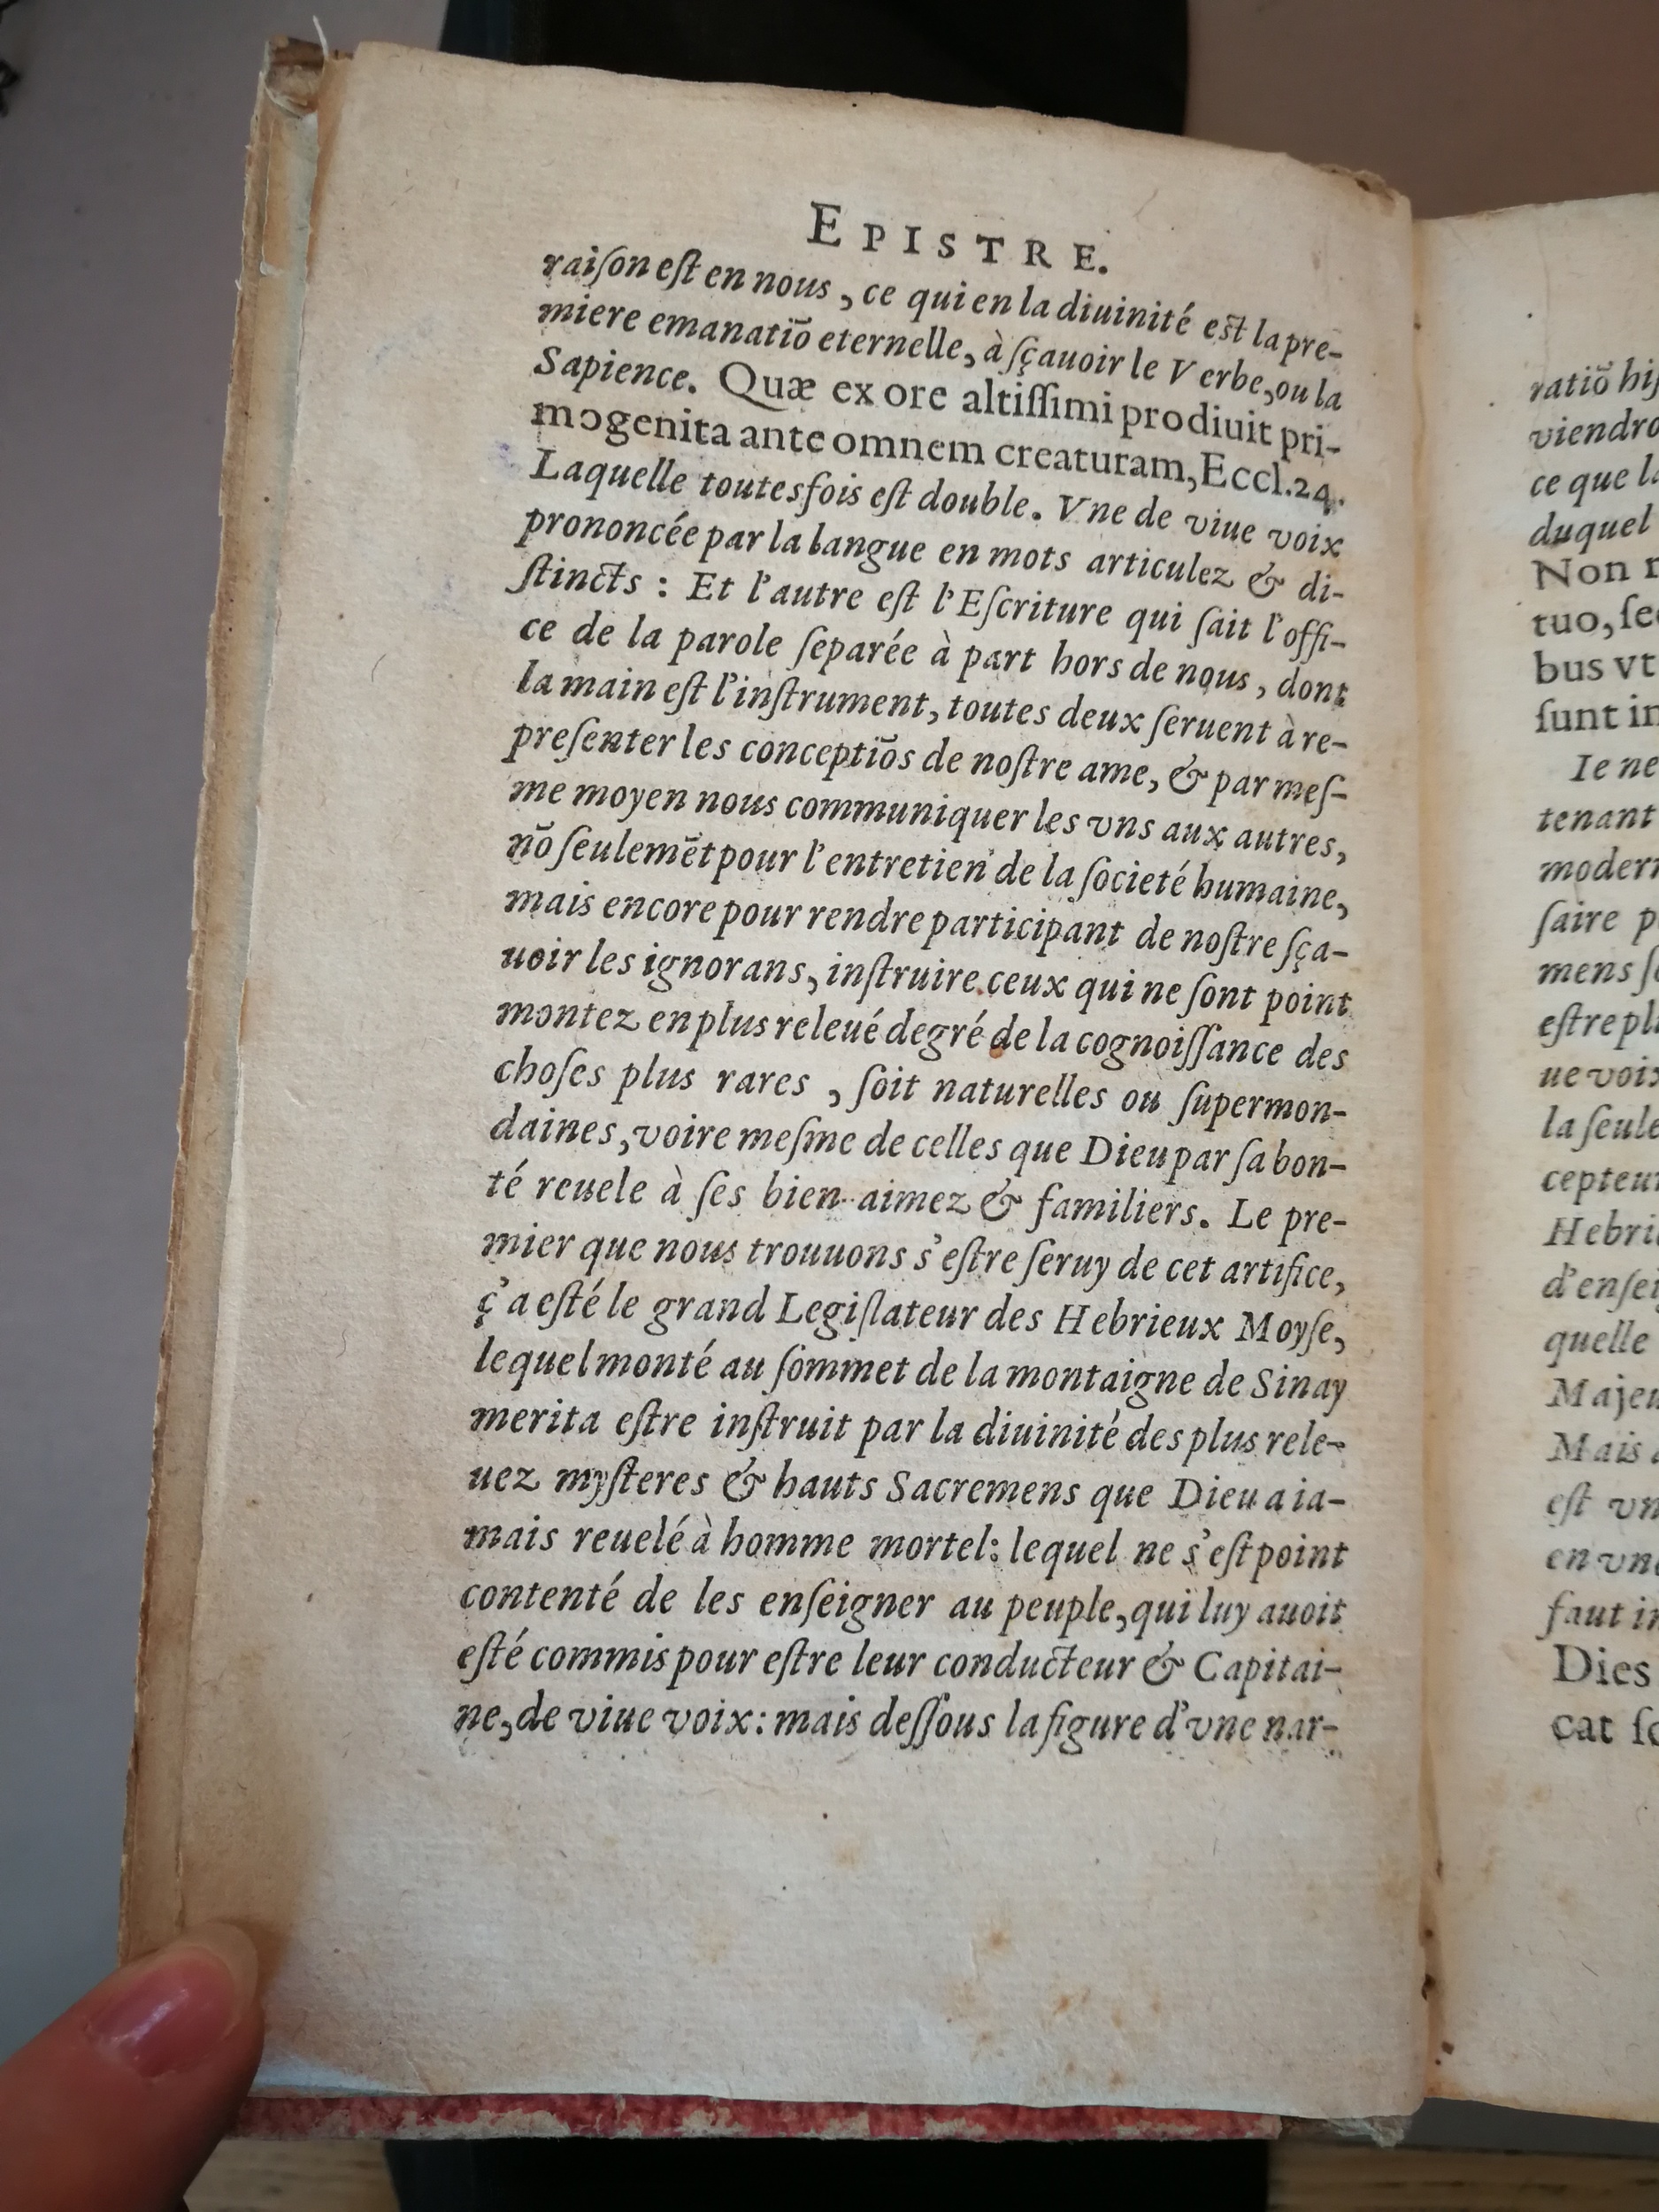 EPISTRE.
raiſon eſt en nous, ce qui en la diuinité eſt la pre-
miere emanatiō eternelle, à ſçauoir le Verbe, ou la
Sapience. Quæ ex ore altiſſimi prodiuit pri-
mogenita ante omnem creaturam, Eccl. 24.
Laquelle toutesfois eſt double. Vne de viue voix
prononcée par la langue en mots articulez & di-
ſtincts : Et l'autre eſt l'Eſcriture qui fait l'offi-
ce de la parole ſeparée à part hors de nous, dont
la main eſt l'inſtrument, toutes deux ſeruent à re-
preſenter les conceptiōs de noſtre ame, & par meſ-
me moyen nous communiquer les vns aux autres,
nō ſeulemēt pour l'entretien de la ſocieté humaine,
mais encore pour rendre participant de noſtre ſça-
uoir les ignorans, inſtruire ceux qui ne ſont point
montez en plus releué degré de la cognoiſſance des
choſes plus rares, ſoit naturelles ou ſupermon-
daines, voire meſme de celles que Dieu par ſa bon-
té reuele à ſes bien-aimez & familiers. Le pre-
mier que nous trouuons s'eſtre ſeruy de cet artifice,
ç'a eſté le grand Legiſlateur des Hebrieux Moyſe,
lequel monté au ſommet de la montaigne de Sinay
merita eſtre inſtruit par la diuinité des plus rele-
uez myſteres & hauts Sacremens que Dieu a ia-
mais reuelé à homme mortel: lequel ne s'eſt point
contenté de les enſeigner au peuple, qui luy auoit
eſté commis pour eſtre leur conducteur & Capitai-
ne, de viue voix: mais deſſous la figure d'vne nar-
ratiō
viendro
ce que
duquel
Non
tuo,
bus vt
ſunt
Ie ne
tenant
moder
ſaire
mens
eſtre
ue
la ſeule
cepteu
Hebri
d'enſei
quelle
Majeu
Mais
eſt
en
faut
Dies
cat